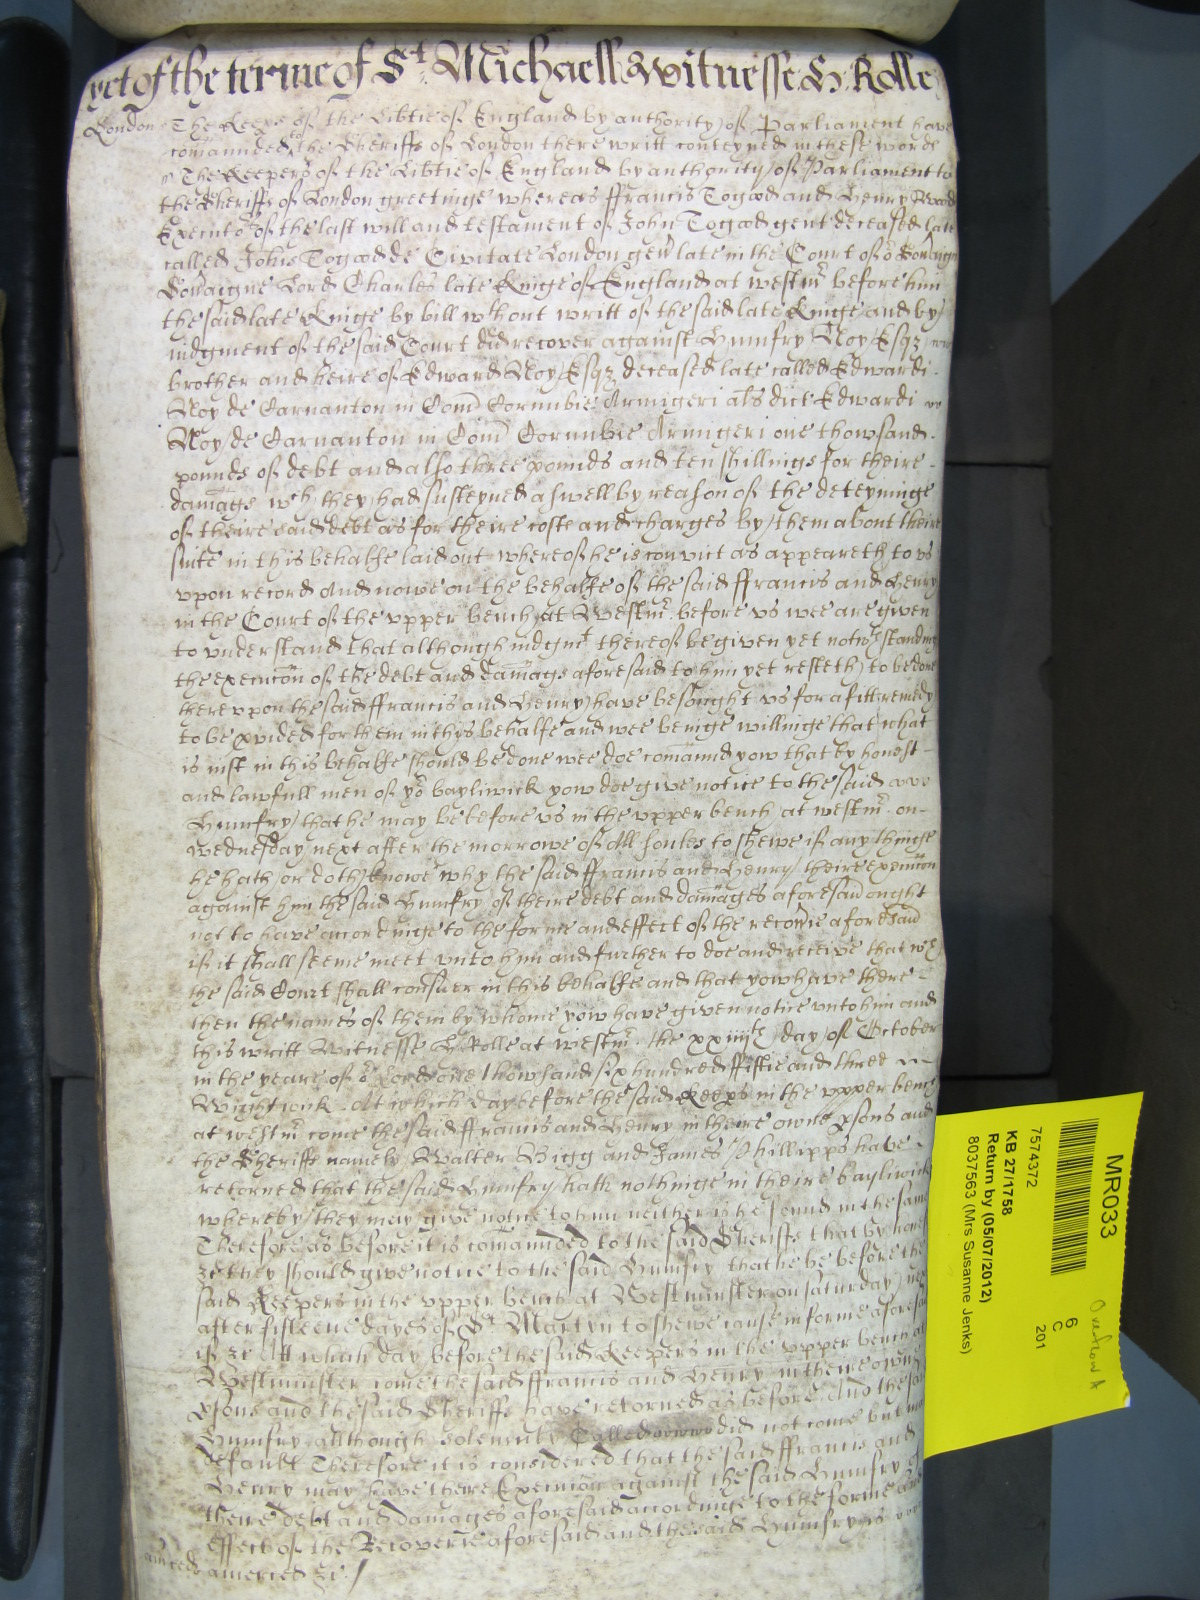 yet of the terme of St. Michaell Witnesse H Rolle
London The Keeps of the Libtie of England by authority of Parliament have
comaunded to the Sheriffs of London there writt conteyned in these words
The Keepers of the Libtie of England by authority of Parliament to
the Sheriffs of London greetinge whereas ffrancis Togood and Henry
Executo of the last will and testament of John Togood gent deceased late
called Johis Togood de Civitate London gen late in the Court of
Lord Charles late Kinge of England at westm before him
the said late Kinge by bill wthout writt of the said late Kinge and by
iudgment of the said Court did recover against Humfry Noy Esqz
brother and heire of Edward Noy Esqz deceased late called Edwardi
Noy de Carnanton in Com Cornubie Armigeri als dict Edwardi
Noy de Carnanton in Com Cornubie Armigeri one thowsand
pounds of debt and also three pounds and ten shillings for theire
damags wch they had susteyned aswell by reason of the deteyninge
of theire said debt as for theire costs and charges by them about their
suite in this behalfe laid out whereof he is convict as appeareth to us
upon record And nowe on the behalfe of the said ffrancis and Henry
in the Court of the upper bench at Westm before us wee are given
to understand that although iudgmt thereof be given yet notwthstanding
the execucon of the debt and damags aforesaid to him yet resteth to be done
thereupon the said ffrancis and Henry have besought us for a fitt remedy
to be pvided for them in this behalfe and wee beinge willinge that what
is iust in this behalfe should be done wee doe comaund yow that by honest
and lawfull men of yor bayliwick yow doe give notice to the said
Humfry that he may be before us in the upper bench at westm on
wednesday next after the morrowe of All soules to shewe if any thinge
he hath or doth knowe why the said ffrancis and Henry theire execucon
against him the said Humfry of theire debt and damages aforesaid ought
not to have accordinge to the forme and effect of the recovie aforesaid
if it shall seeme meet unto him and further to doe and receive that wch
the said Court shall consider in this behalfe and that yow have there
then the names of them by whome yow have given notice unto him and
this writt Witnesse H Rolle at westm the xxiiiith day of October
in the yeare of or Lord one thowsand six hundred fiftie and three
Wightwick At which day before the said Keeps in the upper bench
at westm come the said ffrancis and Henry in theire owne psons and
the Sheriffs namely Walter Bigg and James Phillipps have
retorned that the said Humfry hath nothinge in theire bayliwick
whereby they may give notice to him neither is he found in the same
Therefore as before it is comaunded to the said Sheriffs that by honest
zc they should give notice to the said Humfry that he be before the
said Keepers in the upper bench at Westminster on saturday next
after fifteene dayes of St Martyn to shewe cause in forme aforesaid
if zc Att which day before the said Keepers in the upper bench at
Westminster come the said ffrancis and Henry in theire owne
psons and the said Sheriffs have retorned as before And the said
Humfry although solemnly Called did not come but made
default Therefore it is considered that the said ffrancis and
Henry may have there Execucon against the said Humfry of
theire debt and damages aforesaid accordinge to the forme and
effect of the Recoverie aforesaid and the said Humfry is
amerced zc
MR033
7574372
KB 27/1758
Return by (05/07/2012)
8037563 (Mrs Susanne Jenks)
6
C
201